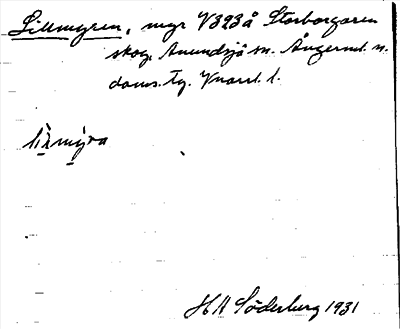 Lillmyren, myr V323 å Storborgaren
skog, Anundsjö sn. Ångerml. n.
doms. Tg. Kvarnl. l.
lìlmýra
H A Söderberg 1931